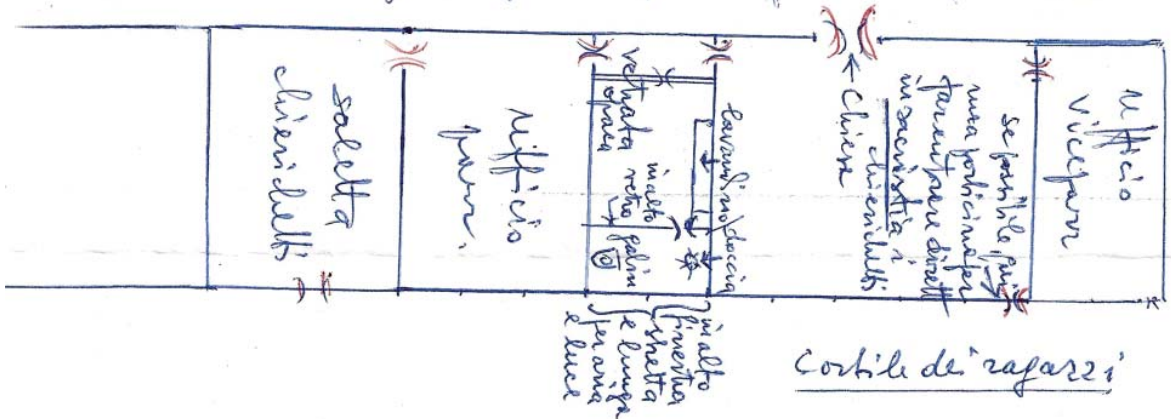 saletta
chierichetti
Ufficio
parr.
vetrata
opaca
in alto
vetro
lavandino doccia
in alto
finestra
stretta
e lunga
per aria
e luce
← Chiesa
se possibile, qui
una porticina per
far entrare dirett
in sacristia i
chierichetti
Ufficio
Viceparr
Cortile dei ragazzi